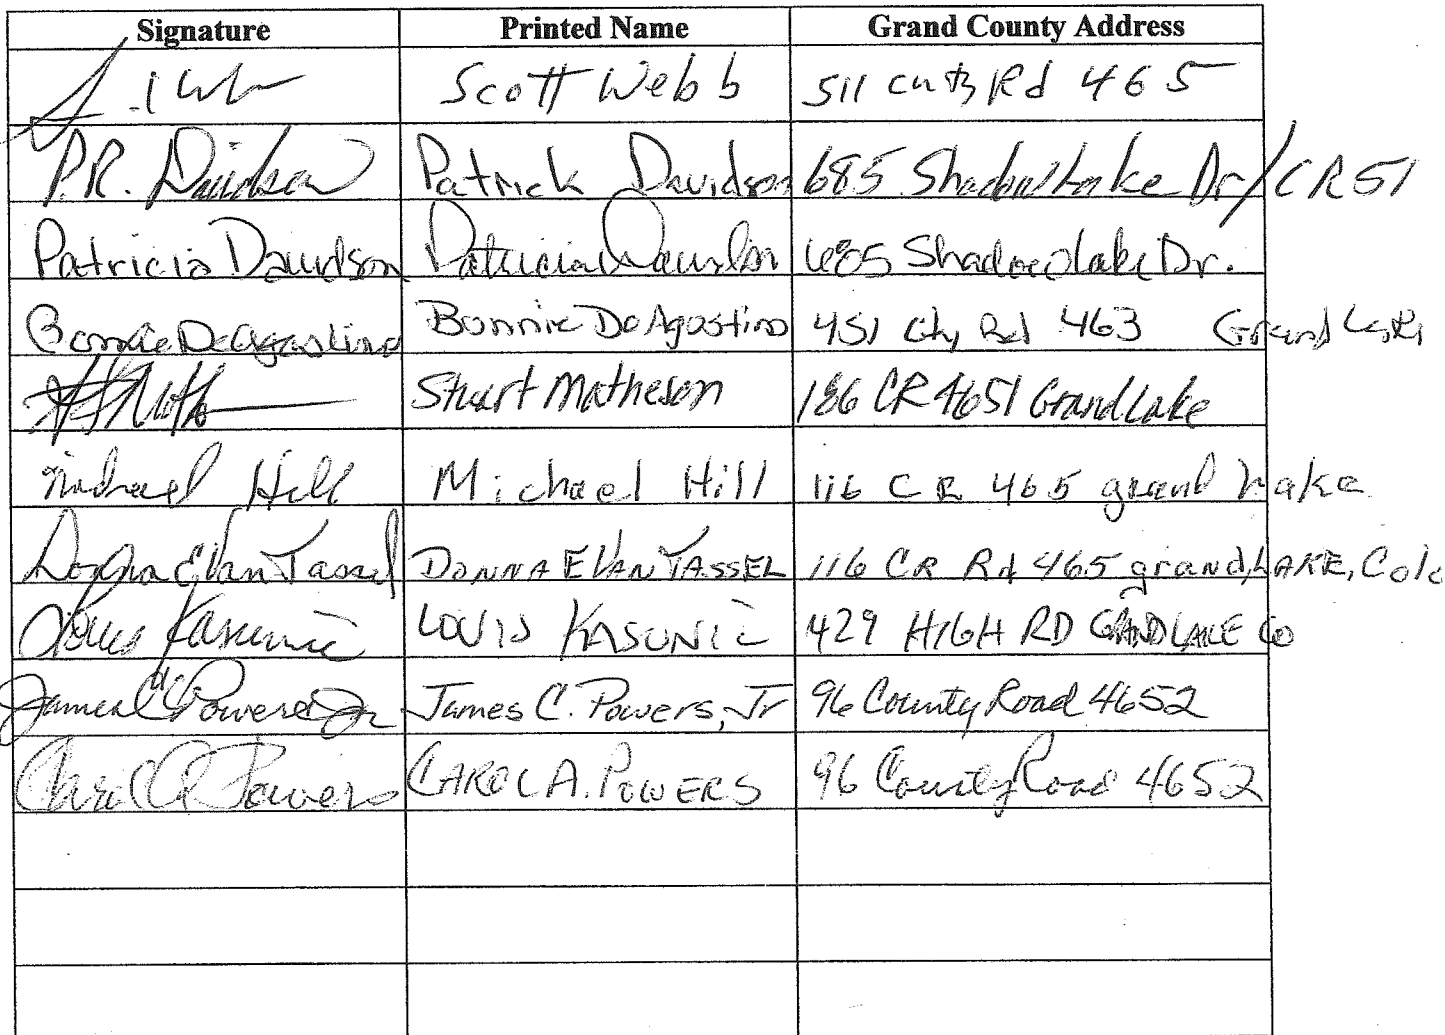 Signature Printed Name Grand County Address
Scott Webb 511 Cnty Rd 465
P.R. Davidson Patrick Davidson 685 Shadow Lake Dr/CR 51
Patricia Davidson Patricia Davidson 685 Shadowlake Dr.
Bonnie DeAgostino Bonnie DeAgostino 451 Cty Rd 463 Grand Lake
Stuart Matheson 186 CR 4651 Grand Lake
Michael Hill Michael Hill 116 CR 465 grand Lake
Donna E Van Tassel DONNA E VAN TASSEL 116 CR Rd 465 grand LAKE, Colo
Louis Kasunic LOUIS KASUNIC 429 HIGH RD GRAND LAKE CO
James C Powers Jr James C. Powers, Jr 96 County Road 4652
Carol A Powers CAROL A. POWERS 96 County Road 4652